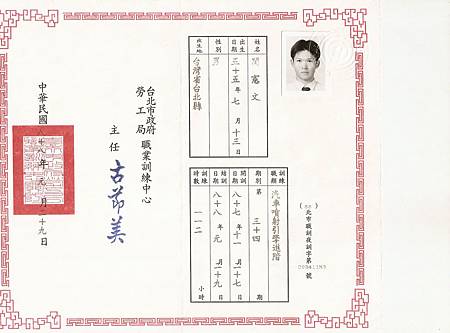 北市職訓夜訓字第 號
姓名 憲文
出生日期 三十五年七月十三日
性別 男
出生地 台灣省台北縣
訓練職類 汽車噴射引擎進階
期別 第三十四期
開訓日期 八十七年十一月二十七日
結訓日期 八十八年元月二十九日
訓練時數 一一二小時
台北市政府
勞工局
職業訓練中心
主任 古茆美
中華民國八十八年元月二十九日